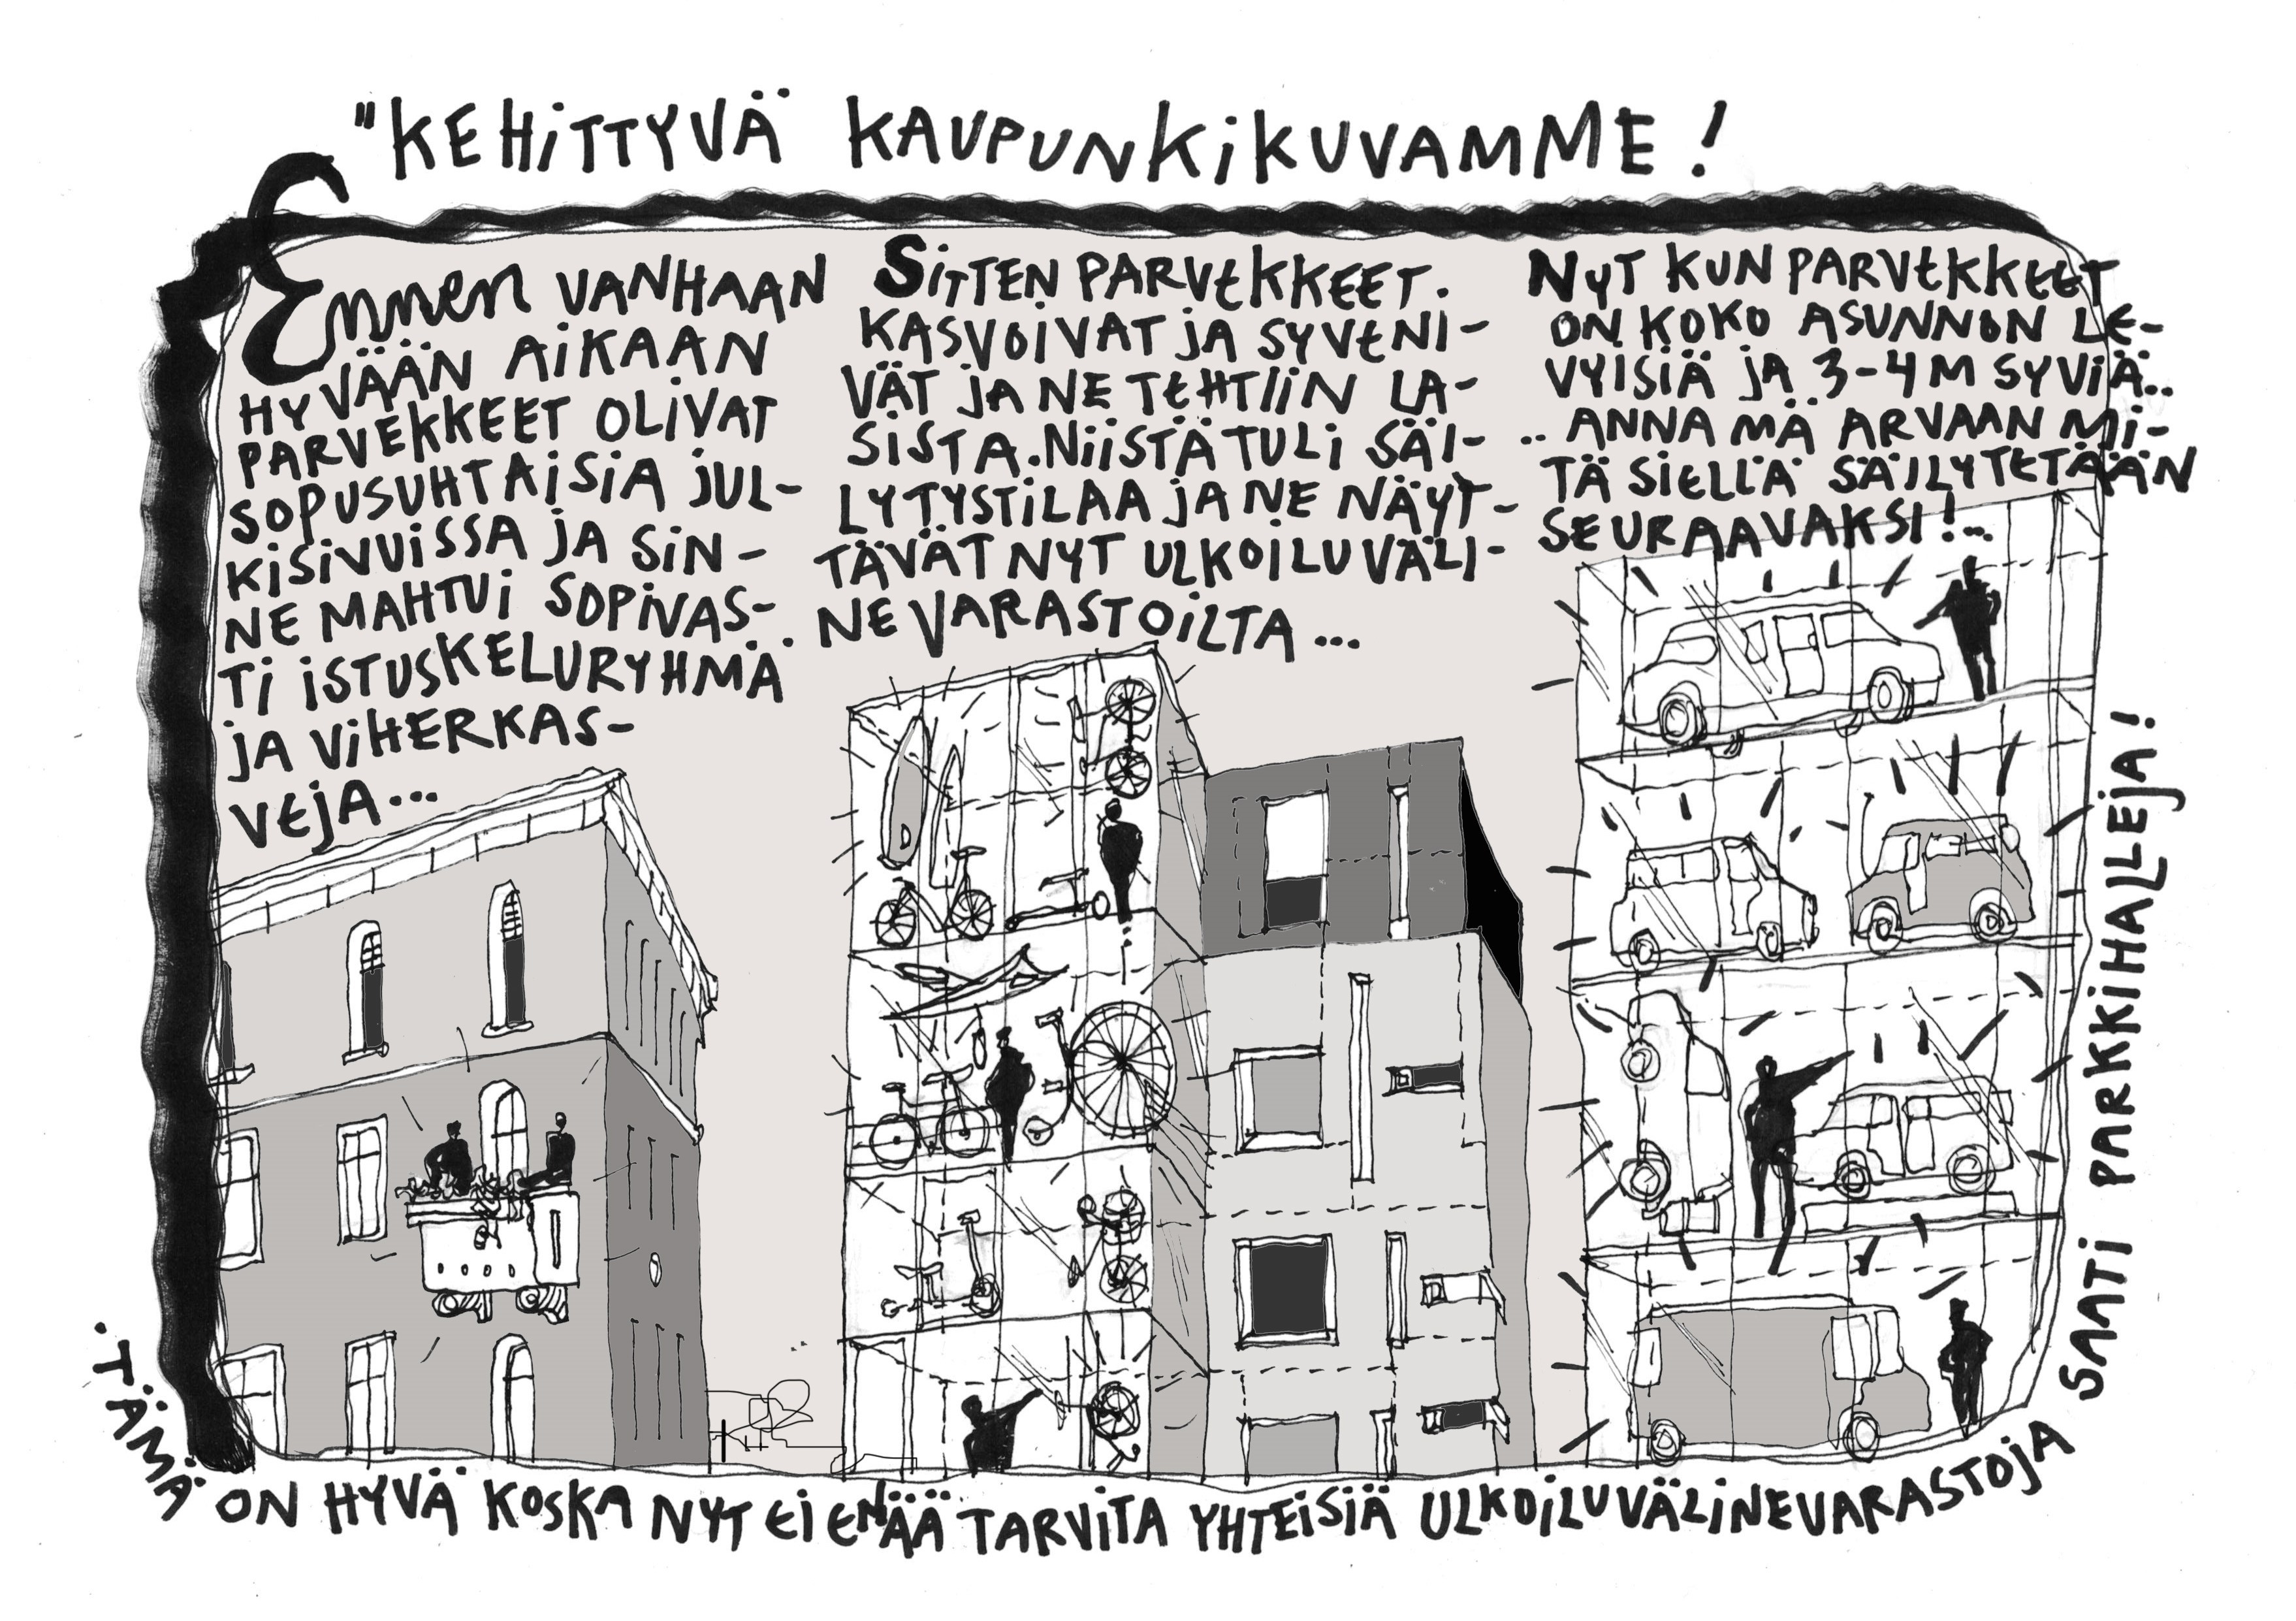 "KEHITTYVÄ KAUPUNKIKUVAMME!
ENNEN VANHAAN
HYVÄÄN AIKAAN
PARVEKKEET OLIVAT
SOPUSUHTAISIA JUL-
KISIVUISSA JA SIN-
NE MAHTUI SOPIVAS-
TI ISTUSKELURYHMÄ
JA VIHERKAS-
VEJA...
SITTEN PARVEKKEET.
KASVOIVAT JA SYVENI-
VÄT JA NE TEHTIIN LA-
SISTA. NIISTÄ TULI SÄI-
LYTYSTILAA JA NE NÄYT-
TÄVÄT NYT ULKOILUVÄLI-
NEVARASTOILTA...
NYT KUN PARVEKKEET
ON KOKO ASUNNON LE-
VYISIÄ JA 3-4M SYVIÄ..
..ANNA MÄ ARVAAN MI-
TÄ SIELLÄ SÄILYTETÄÄN
SEURAAVAKSI!..
.TÄMÄ ON HYVÄ KOSKA NYT EI ENÄÄ TARVITA YHTEISIÄ ULKOILUVÄLINEVARASTOJA SAATI PARKKIHALLEJA!